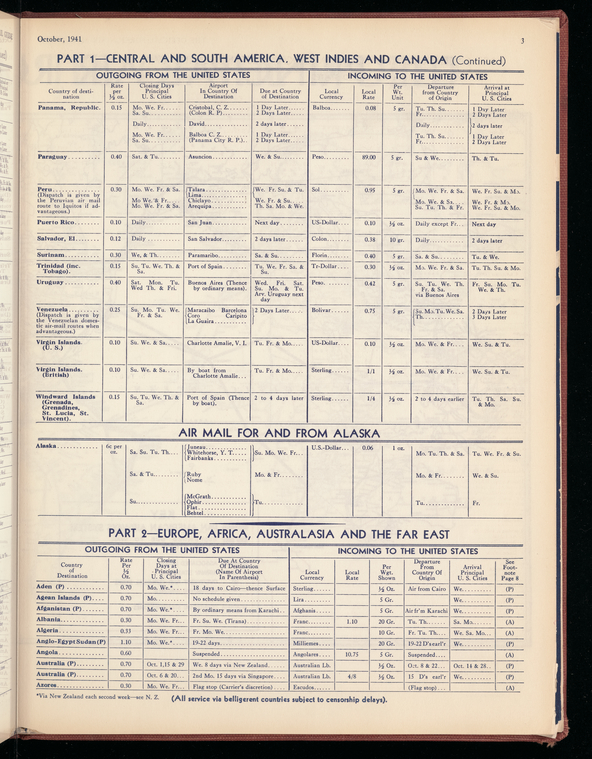 October, 1941
3
PART 1—CENTRAL AND SOUTH AMERICA, WEST INDIES AND CANADA (Continued)
OUTGOING FROM THE UNITED STATES INCOMING TO THE UNITED STATES
Country of desti-nation Rate per ½ oz. Closing Days Principal U. S. Cities Airport In Country Of Destination Due at Country of Destination Local Currency Local Rate Per Wt. Unit Departure from Country of Origin Arrival at Principal U. S. Cities
Panama, Republic. 0.15 Mo. We. Fr. Cristobal, C. Z. 1 Day Later Balboa 0.08 5 gr. Tu. Th. Su. 1 Day Later
Sa. Su. (Colon R. P.) 2 Days Later Fr. 2 Days Later
Daily David 2 days later Daily 2 days later
Mo. We. Fr. Balboa C. Z. 1 Day Later Tu. Th. Sa. 1 Day Later
Sa. Su. (Panama City R. P.) 2 Days Later Fr. 2 Days Later
Paraguay 0.40 Sat. & Tu. Asuncion We. & Su. Peso 89.00 5 gr. Su & We. Th. & Tu.
Peru 0.30 Mo. We. Fr. & Sa. Talara We. Fr. Su. & Tu. Sol 0.95 5 gr. Mo. We. Fr. & Sa. We. Fr. Su. & Mo.
(Dispatch is given by Lima
the Peruvian air mail Mo. We. & Fr. Chiclayo We. Fr. & Su. Mo. We. & Sa. We. Fr. & Mo.
route to Iquitos if ad- Mo. We. Fr. & Sa. Arequipa Th. Sa. Mo. & We. Su. Tu. Th. & Fr. We. Fr. Su. & Mo.
vantageous.)
Puerto Rico 0.10 Daily San Juan Next day US-Dollar 0.10 ½ oz. Daily except Fr. Next day
Salvador, El 0.12 Daily San Salvador 2 days later Colon 0.38 10 gr. Daily 2 days later
Surinam 0.30 We, & Th. Paramaribo Sa. & Su. Florin 0.40 5 gr. Sa. & Su. Tu. & We.
Trinidad (inc. Tobago). 0.15 Su. Tu. We. Th. & Sa. Port of Spain Tu. We. Fr. Sa. & Su. Tr-Dollar 0.30 ½ oz. Mo. We. Fr. & Sa. Tu. Th. Su. & Mo.
Uruguay 0.40 Sat. Mon. Tu. Wed Th. & Fri. Buenos Aires (Thence by ordinary means). Wed. Fri. Sat. Su. Mo. & Tu. Arv. Uruguay next day Peso 0.42 5 gr. Su. Tu. We. Th. Fr. & Sa. via Buenos Aires Fr. Su. Mo. Tu. We. & Th.
Venezuela 0.25 Su. Mo. Tu. We. Fr. & Sa. Maracaibo Barcelona 2 Days Later Bolivar 0.75 5 gr. Su. Mo. Tu. We. Sa. 2 Days Later
(Dispatch is given by Coro Caripito Th. 3 Days Later
the Venezuelan domes- La Guaira
tic air-mail routes when
advantageous.)
Virgin Islands (U. S.) 0.10 Su. We. & Sa. Charlotte Amalie, V. I. Tu. Fr. & Mo. US-Dollar 0.10 ½ oz. Mo. We. & Fr. We. Su. & Tu.
Virgin Islands (British) 0.10 Su. We. & Sa. By boat from Charlotte Amalie Tu. Fr. & Mo. Sterling 1/1 ½ oz. Mo. We. & Fr. We. Su. & Tu.
Windward Islands 0.15 Su. Tu. We. Th. & Sa. Port of Spain (Thence by boat). 2 to 4 days later Sterling 1/4 ½ oz. 2 to 4 days earlier Tu. Th. Sa. Su. & Mo.
(Grenada,
Grenadines,
St. Lucia, St.
Vincent).
AIR MAIL FOR AND FROM ALASKA
Alaska 6c per oz. Sa. Su. Tu. Th. Juneau Su. Mo. We. Fr. U.S.-Dollar 0.06 1 oz. Mo. Tu. Th. & Sa. Tu. We. Fr. & Su.
Whitehorse, Y. T.
Fairbanks
Sa. & Tu. Ruby Mo. & Fr. Mo. & Fr. We. & Su.
Nome
Su. McGrath Tu. Tu. Fr.
Ophir
Flat
Bethel
PART 2—EUROPE, AFRICA, AUSTRALASIA AND THE FAR EAST
OUTGOING FROM THE UNITED STATES INCOMING TO THE UNITED STATES
Country of Destination Rate Per ½ Oz. Closing Days at Principal U. S. Cities Due At Country Of Destination (Name Of Airport In Parenthesis) Local Currency Local Rate Per Wgt. Shown Departure From Country Of Origin Arrival Principal U. S. Cities See Foot-note Page 8
Aden (P) 0.70 Mo. We.* 18 days to Cairo—thence Surface Sterling ½ Oz. Air from Cairo We. (P)
Agean Islands (P) 0.70 Mo. No schedule given Lira 5 Gr. We. (P)
Afganistan (P) 0.70 Mo. We.* By ordinary means from Karachi Afghania 5 Gr. Air fr'm Karachi We. (P)
Albania 0.30 Mo. We. Fr. Fr. Su. We. (Tirana) Franc 1.10 20 Gr. Tu. Th. Sa. Mo. (A)
Algeria 0.33 Mo. We. Fr. Fr. Mo. We. Franc 10 Gr. Fr. Tu. Th. We. Sa. Mo. (A)
Anglo-Egypt Sudan (P) 1.10 Mo. We.* 19-22 days Milliemes 20 Gr. 19-22 D's earl'r We. (P)
Angola 0.60 Suspended Angolares 10.75 5 Gr. Suspended (A)
Australia (P) 0.70 Oct. 1, 15 & 29 We. 8 days via New Zealand Australian Lb. ½ Oz. Oct, 8 & 22 Oct. 14 & 28 (P)
Australia (P) 0.70 Oct. 6 & 20 2nd Mo. 15 days via Singapore Australian Lb. 4/8 ½ Oz. 15 D's earl'r We. (P)
Azores 0.30 Mo. We. Fr. Flag stop (Carrier's discretion) Escudos (Flag stop) (A)
*Via New Zealand each second week—see N. Z. (All service via belligerent countries subject to censorship delays).